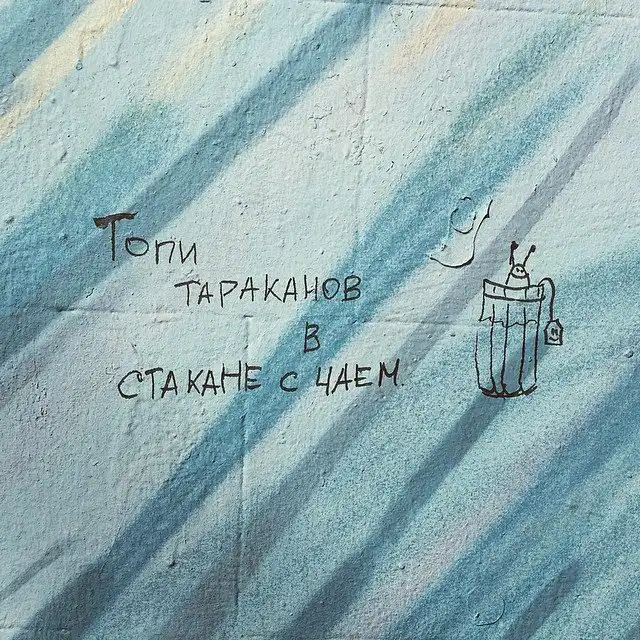 Топи
ТАРАКАНОВ
В
СТАКАНЕ С ЧАЕМ.